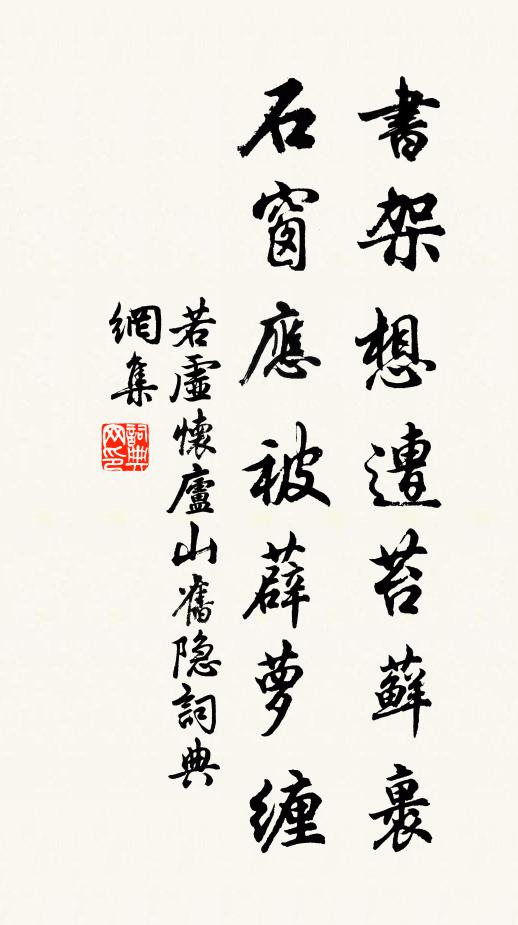 書架想遭苔蘚裹
石窗應被薜蘿纏
若虛懷廬山舊隐詞典
網集
詞典
网印